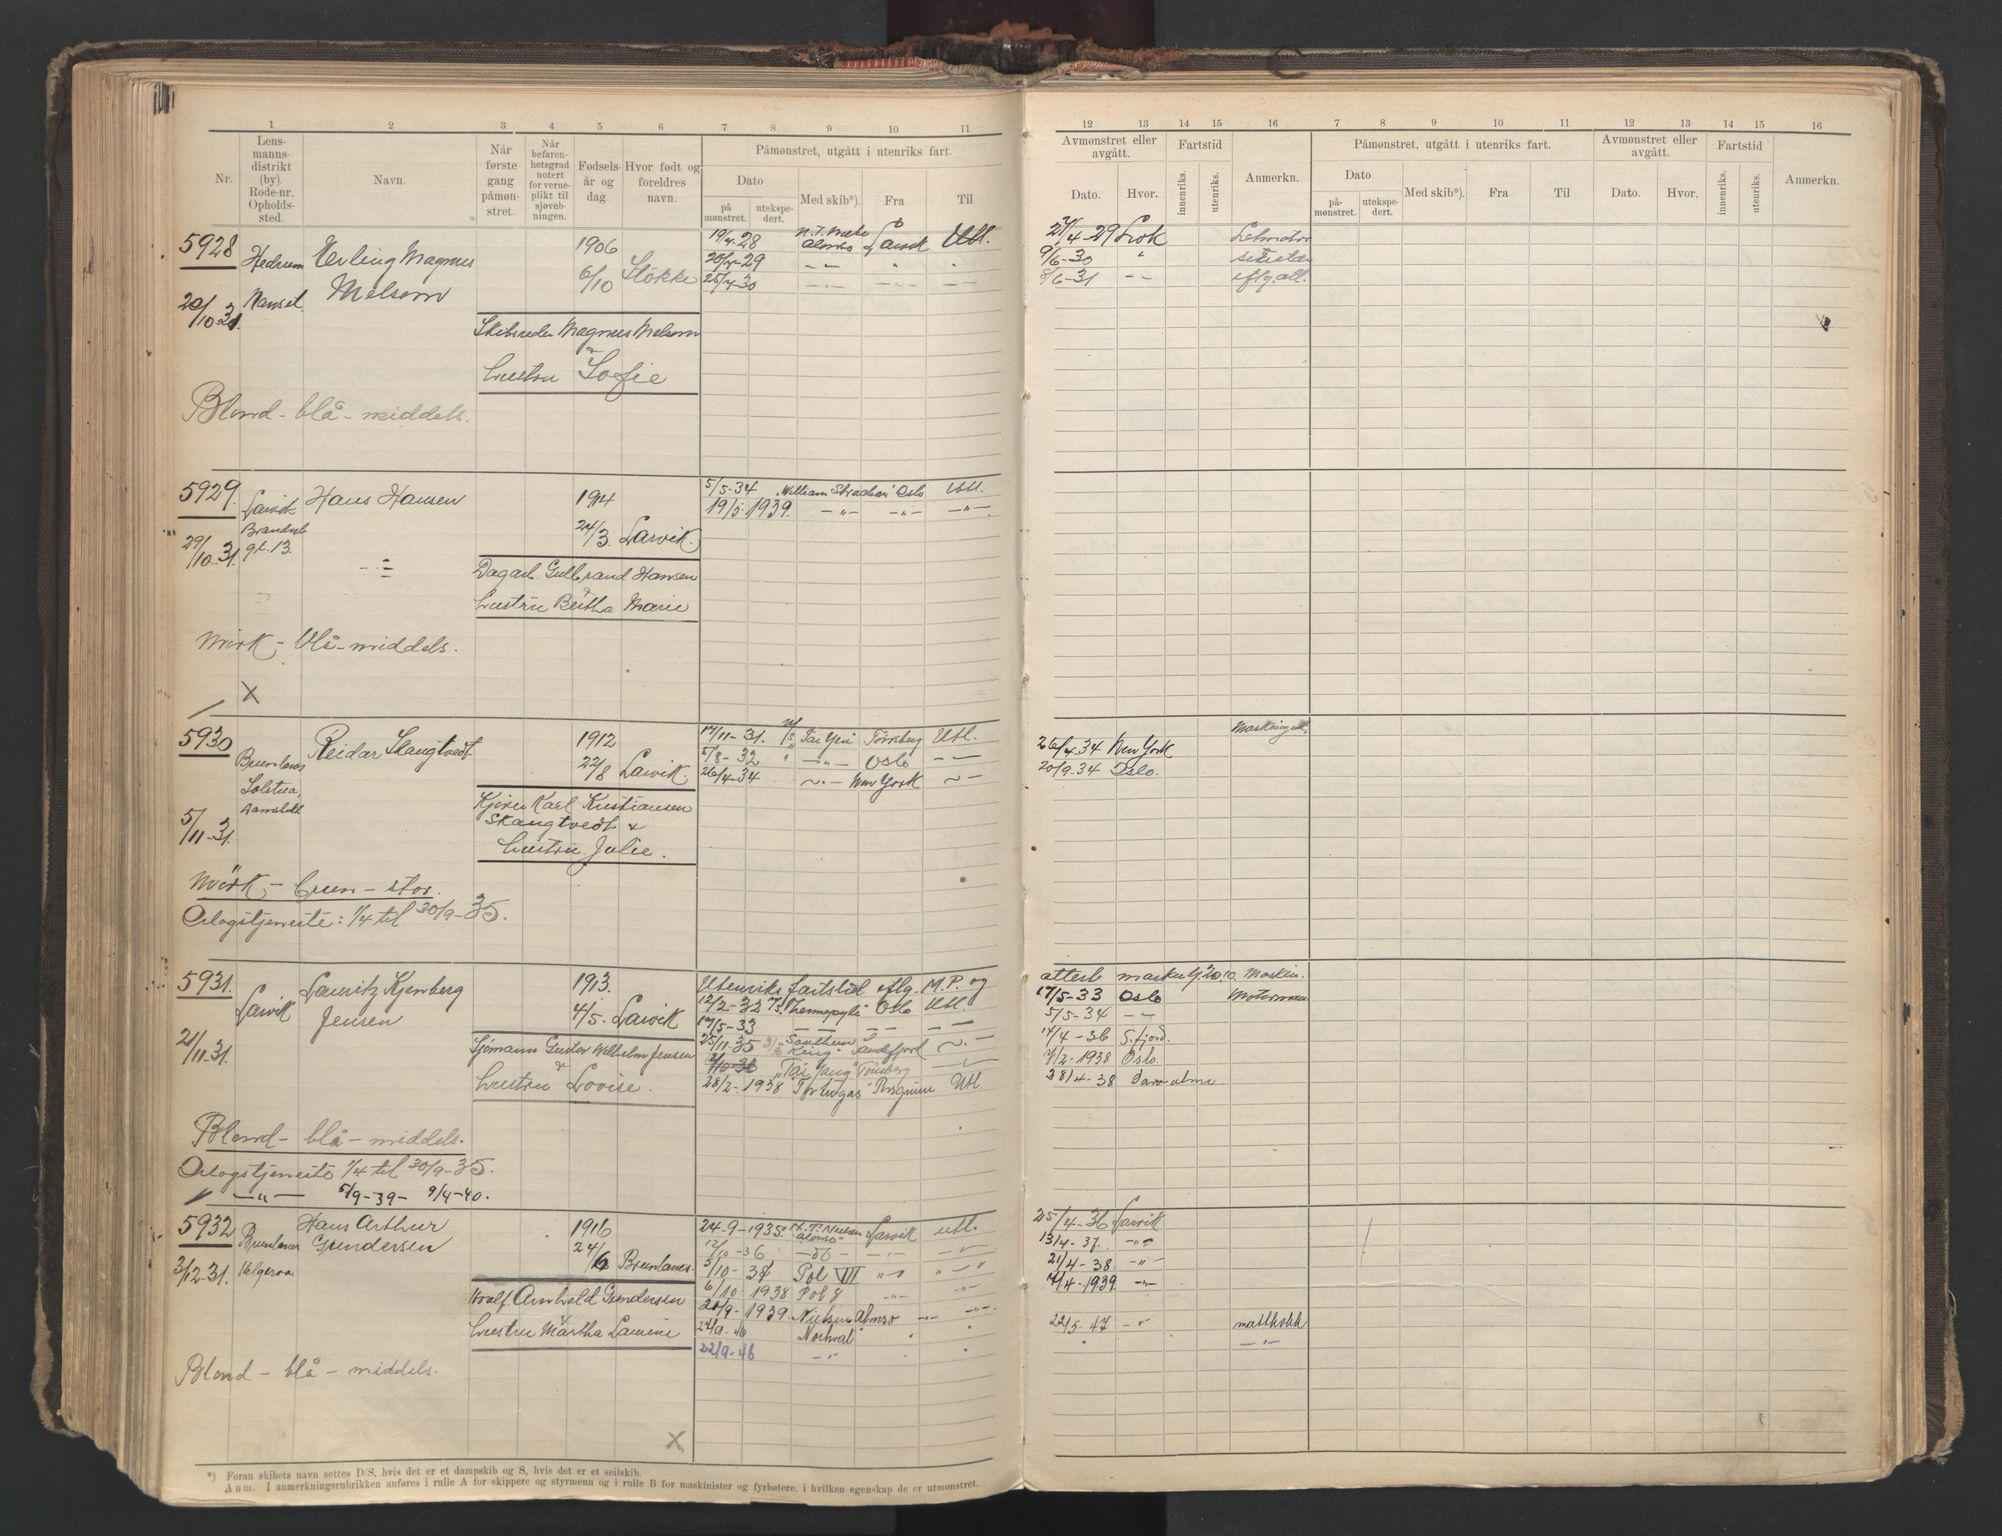 1 2 3 4 5 6 7 8 9 10 11
Nr.
Lens-
manns-
distrikt
(by).
Rode-nr.
Opholds-
sted.
Navn.
Når
første
gang
påmøn-
stret.
Når
befaren-
hetsgrad
notert
for verne-
plikt til
sjøveb-
ningen.
Fødsels-
år og
dag.
Hvor født og
foreldres
navn.
Påmønstret, utgått i utenriks fart.
Dato
på
mønstret.
utekspe-
dert.
Med skib*).
Fra
Til
5928
Hedrum
Nanset
20/10-31.
Erling Magnus
Melsom
1906
6/10 Stokke
Skibsreder Magnus Melsom
&
hustru Sofie
Blond - blå - middels.
19/9-28 Alonso Larvik Utl.
20/9-29
25/9-30
5929.
Larvik
Brandsb
gt. 13.
29/10-31.
Hans Hansen
1914
24/3. Larvik.
Dagarb. Gulbrand Hansen
&
hustru Bertha Marie
Mörk - blå - middels.
X
5/5-34 "William Strachan" Oslo Utl.
19/5 1939. -"- -"- -"-
5930
Brunlanes
5/11-31.
Reidar Skangtvedt
1912
22/8 Larvik.
Kjører Karl Kristiansen
Skangtvedt &
hustru Julie.
Mörk - brun - stor.
Orlogstjeneste: 1/4 til 30/9-35.
17/11-31. "Tai Yin" Tönsberg Utl.
5/8-32 -"- Oslo
26/4-34 New York
5931.
Larvik
21/11-31.
Lauritz Kjemberg
Jensen
1913.
4/5. Larvik
Sjømann Gustav Wilhelm Jensen
&
hustru Lovise.
Blond - blå - middels.
Orlogstjeneste 1/4 til 30/9-35.
-"- 5/9-39 - 9/4-40.
Utenriks fartstid iflg. M.P. og
12/2-32 "Thermopylæ" Oslo Utl.
17/5-33
25/11-35 "Southern
King" Sandefjord
12/10-36 "Tai Yang" Tönsberg
28/2-1938 "Tortugas" Porsgrunn Utl.
5932
Brunlanes
Helgeroa
3/12-31.
Hans Arthur
Gundersen
1916
24/6 Brunlanes.
Hvalf. Arnhold Gundersen
&
hustru Martha Lamine
Blond - blå - middels.
X
24-9-1935 N. T. Nielsen
Alonso Larvik utl.
12/10-36 -do-
5/10-37 Pol VII
6/10-1938 Pol 8
20/9-1939. Nielsen Alonso
24/9-46 Norhval
22/9-46
*) Foran skibets navn settes D/S, hvis det er et dampskib og S, hvis det er et seilskib.
Anm. I anmerkningsrubrikken anføres i rulle A for skippere og styrmenn og i rulle B for maskinister og fyrbøtere, i hvilken egenskap de er utmønstret.
12 13 14 15 16 7 8 9 10 11 12 13 14 15 16
Avmønstret eller
avgått.
Dato. Hvor.
Fartstid
innenriks. utenriks.
Anmerkn.
Påmønstret, utgått i utenriks fart.
Dato
på-
mønstret.
utekspe-
dert.
Med skib*).
Fra
Til
Avmønstret eller
avgått.
Dato. Hvor.
Fartstid
innenriks. utenriks.
Anmerkn.
27/4-29 Lvik
9/6-30 "
8/6-31 -"-
iflg. att.
26/4-34 New York
20/9-34 Oslo.
17/5-33 Oslo Motormann
5/5-34 -"-
14/4-36 S.fjord.
7/2-1938 Oslo.
28/4-38
25/4-36 Larvik
13/4-37. -"-
21/4-38 -"-
7/4-1939. -"-
22/5-47 -"- matkokk